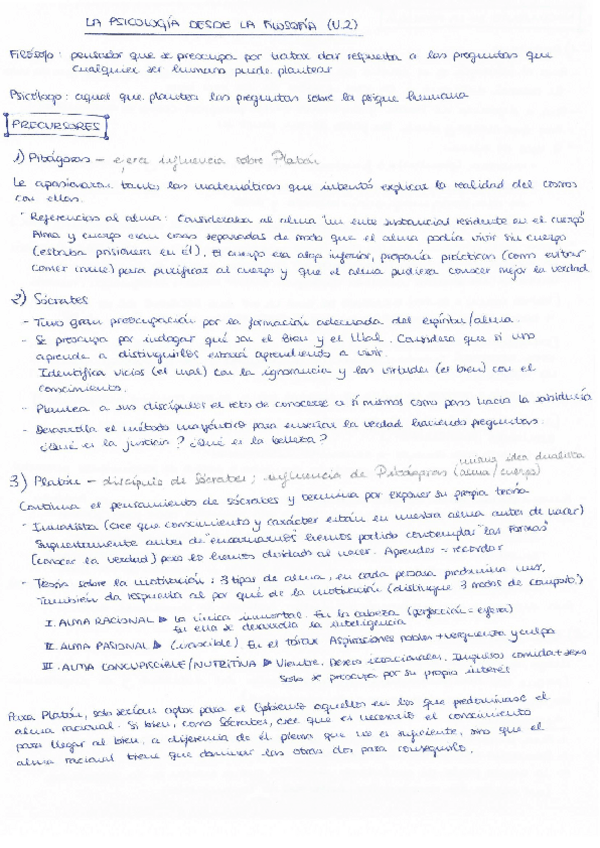 LA PSICOLOGÍA DESDE LA FILOSOFÍA (U.2)
Filósofo: pensador que se preocupa por tratar dar respuesta a las preguntas que
cualquier ser humano puede plantear
Psicólogo: aquel que plantea las preguntas sobre la psique humana
PRECURSORES
1) Pitágoras - ejerce influencia sobre Platón
Le apasionaron tanto las matemáticas que intentó explicar la realidad del cosmos
con ellas.
- Referencias al alma: Consideraba al alma "un ente substancial residente en el cuerpo"
Alma y cuerpo eran cosas separadas de modo que el alma podía vivir sin cuerpo
(estaba prisionera en él). El cuerpo era algo inferior, proponía prácticas (como evitar
comer carne) para purificar al cuerpo y que el alma pudiera conocer mejor la verdad
2) Sócrates
- Tuvo gran preocupación por la formación adecuada del espíritu/alma.
- Se preocupa por indagar qué son el Bien y el Mal. Considera que si uno
aprende a distinguirlos estará aprendiendo a vivir.
Identifica vicios (el mal) con la ignorancia y las virtudes (el bien) con el
conocimiento.
- Plantea a sus discípulos el reto de conocerse a sí mismos como paso hacia la sabiduría
- Desarrolla el método mayéutico para enseñar la verdad haciendo preguntas.
¿Qué es la justicia? ¿Qué es la belleza?
misma idea dualista
3) Platón - discípulo de Sócrates; influencia de Pitágoras (alma/cuerpo)
Continúa el pensamiento de Sócrates y termina por exponer su propia teoría.
- Innatista (cree que conocimiento y carácter están en nuestra alma antes de nacer)
Supuestamente antes de "encarnarnos" hemos podido contemplar "las Formas"
(conocer la verdad) pero lo hemos olvidado al nacer. Aprender = recordar
- Teoría sobre la motivación: 3 tipos de alma, en cada persona predomina una.
También da respuesta al por qué de la motivación (distingue 3 modos de comport.)
I. ALMA RACIONAL ▶ La única inmortal. En la cabeza (perfección = esfera)
En ella se desarrolla la inteligencia
II. ALMA PASIONAL ▶ (irascible). En el tórax Aspiraciones nobles + vergüenza y culpa
III. ALMA CONCUPISCIBLE/NUTRITIVA ▶ Vientre, Deseos irracionales, Impulsos comida + sexo
Solo se preocupa por su propio interés
Para Platón, solo serían aptos para el Gobierno aquellos en los que predominase el
alma racional. Si bien, como Sócrates, cree que es necesario el conocimiento
para llegar al bien, a diferencia de él piensa que no es suficiente, sino que el
alma racional tiene que dominar las otras dos para conseguirlo.